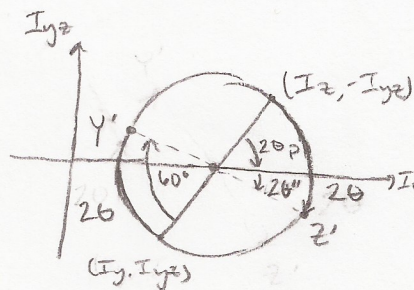 Iyz
(Iz, -Iyz)
Y'
2θp
60°
2θ"
2θ
2θ
Z'
(Iy, Iyz)